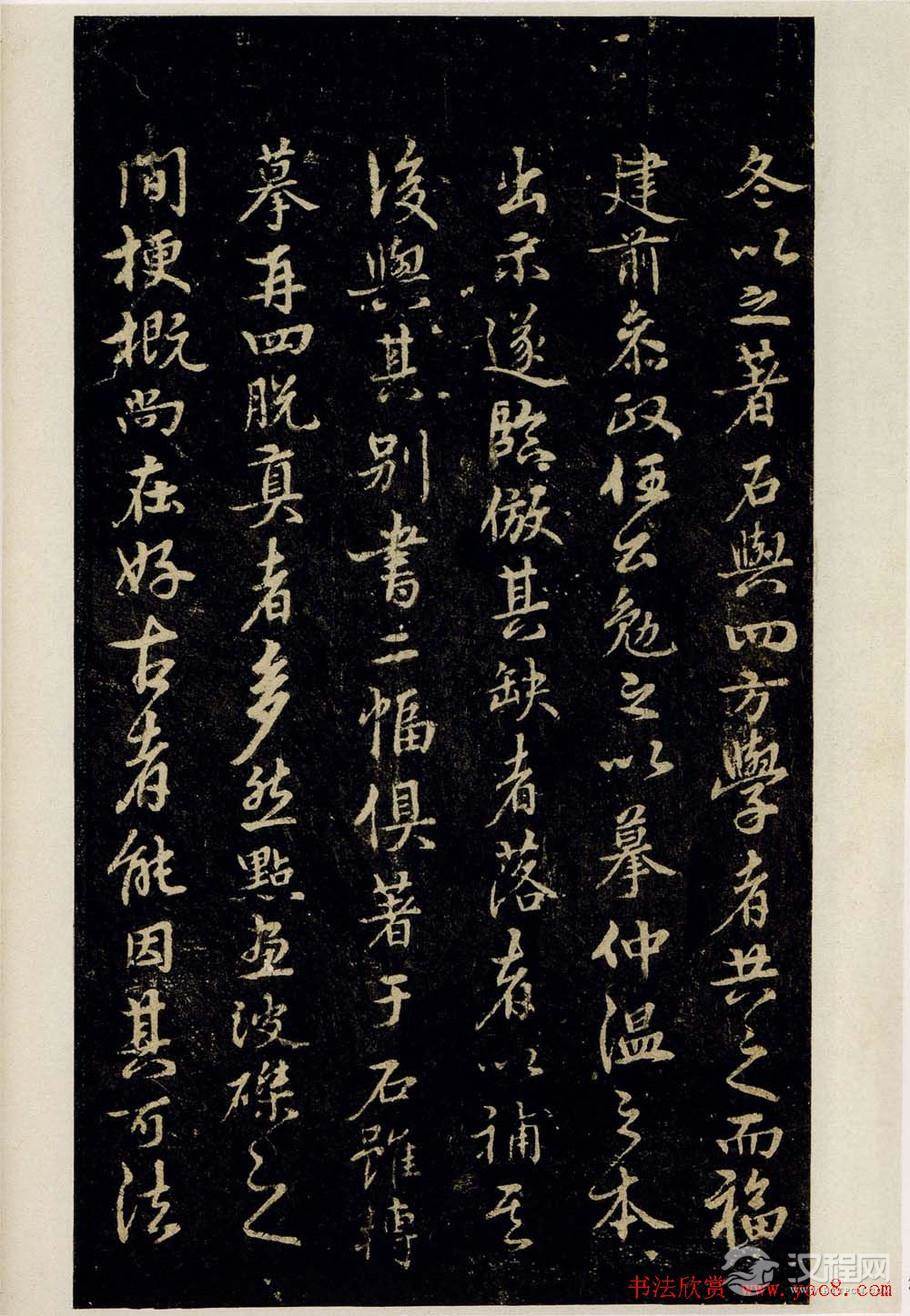 冬以之著石與四方學者共之而福
建前叅政任公勉之以摹仲温之本
出示遂臨倣其缺者落者以補其
後與其別書二幅俱著于石雖轉
摹再四脱真者多然點畫波磔之
間梗概尚在好古者能因其可法
汉程网
书法欣赏 www.yac8.com